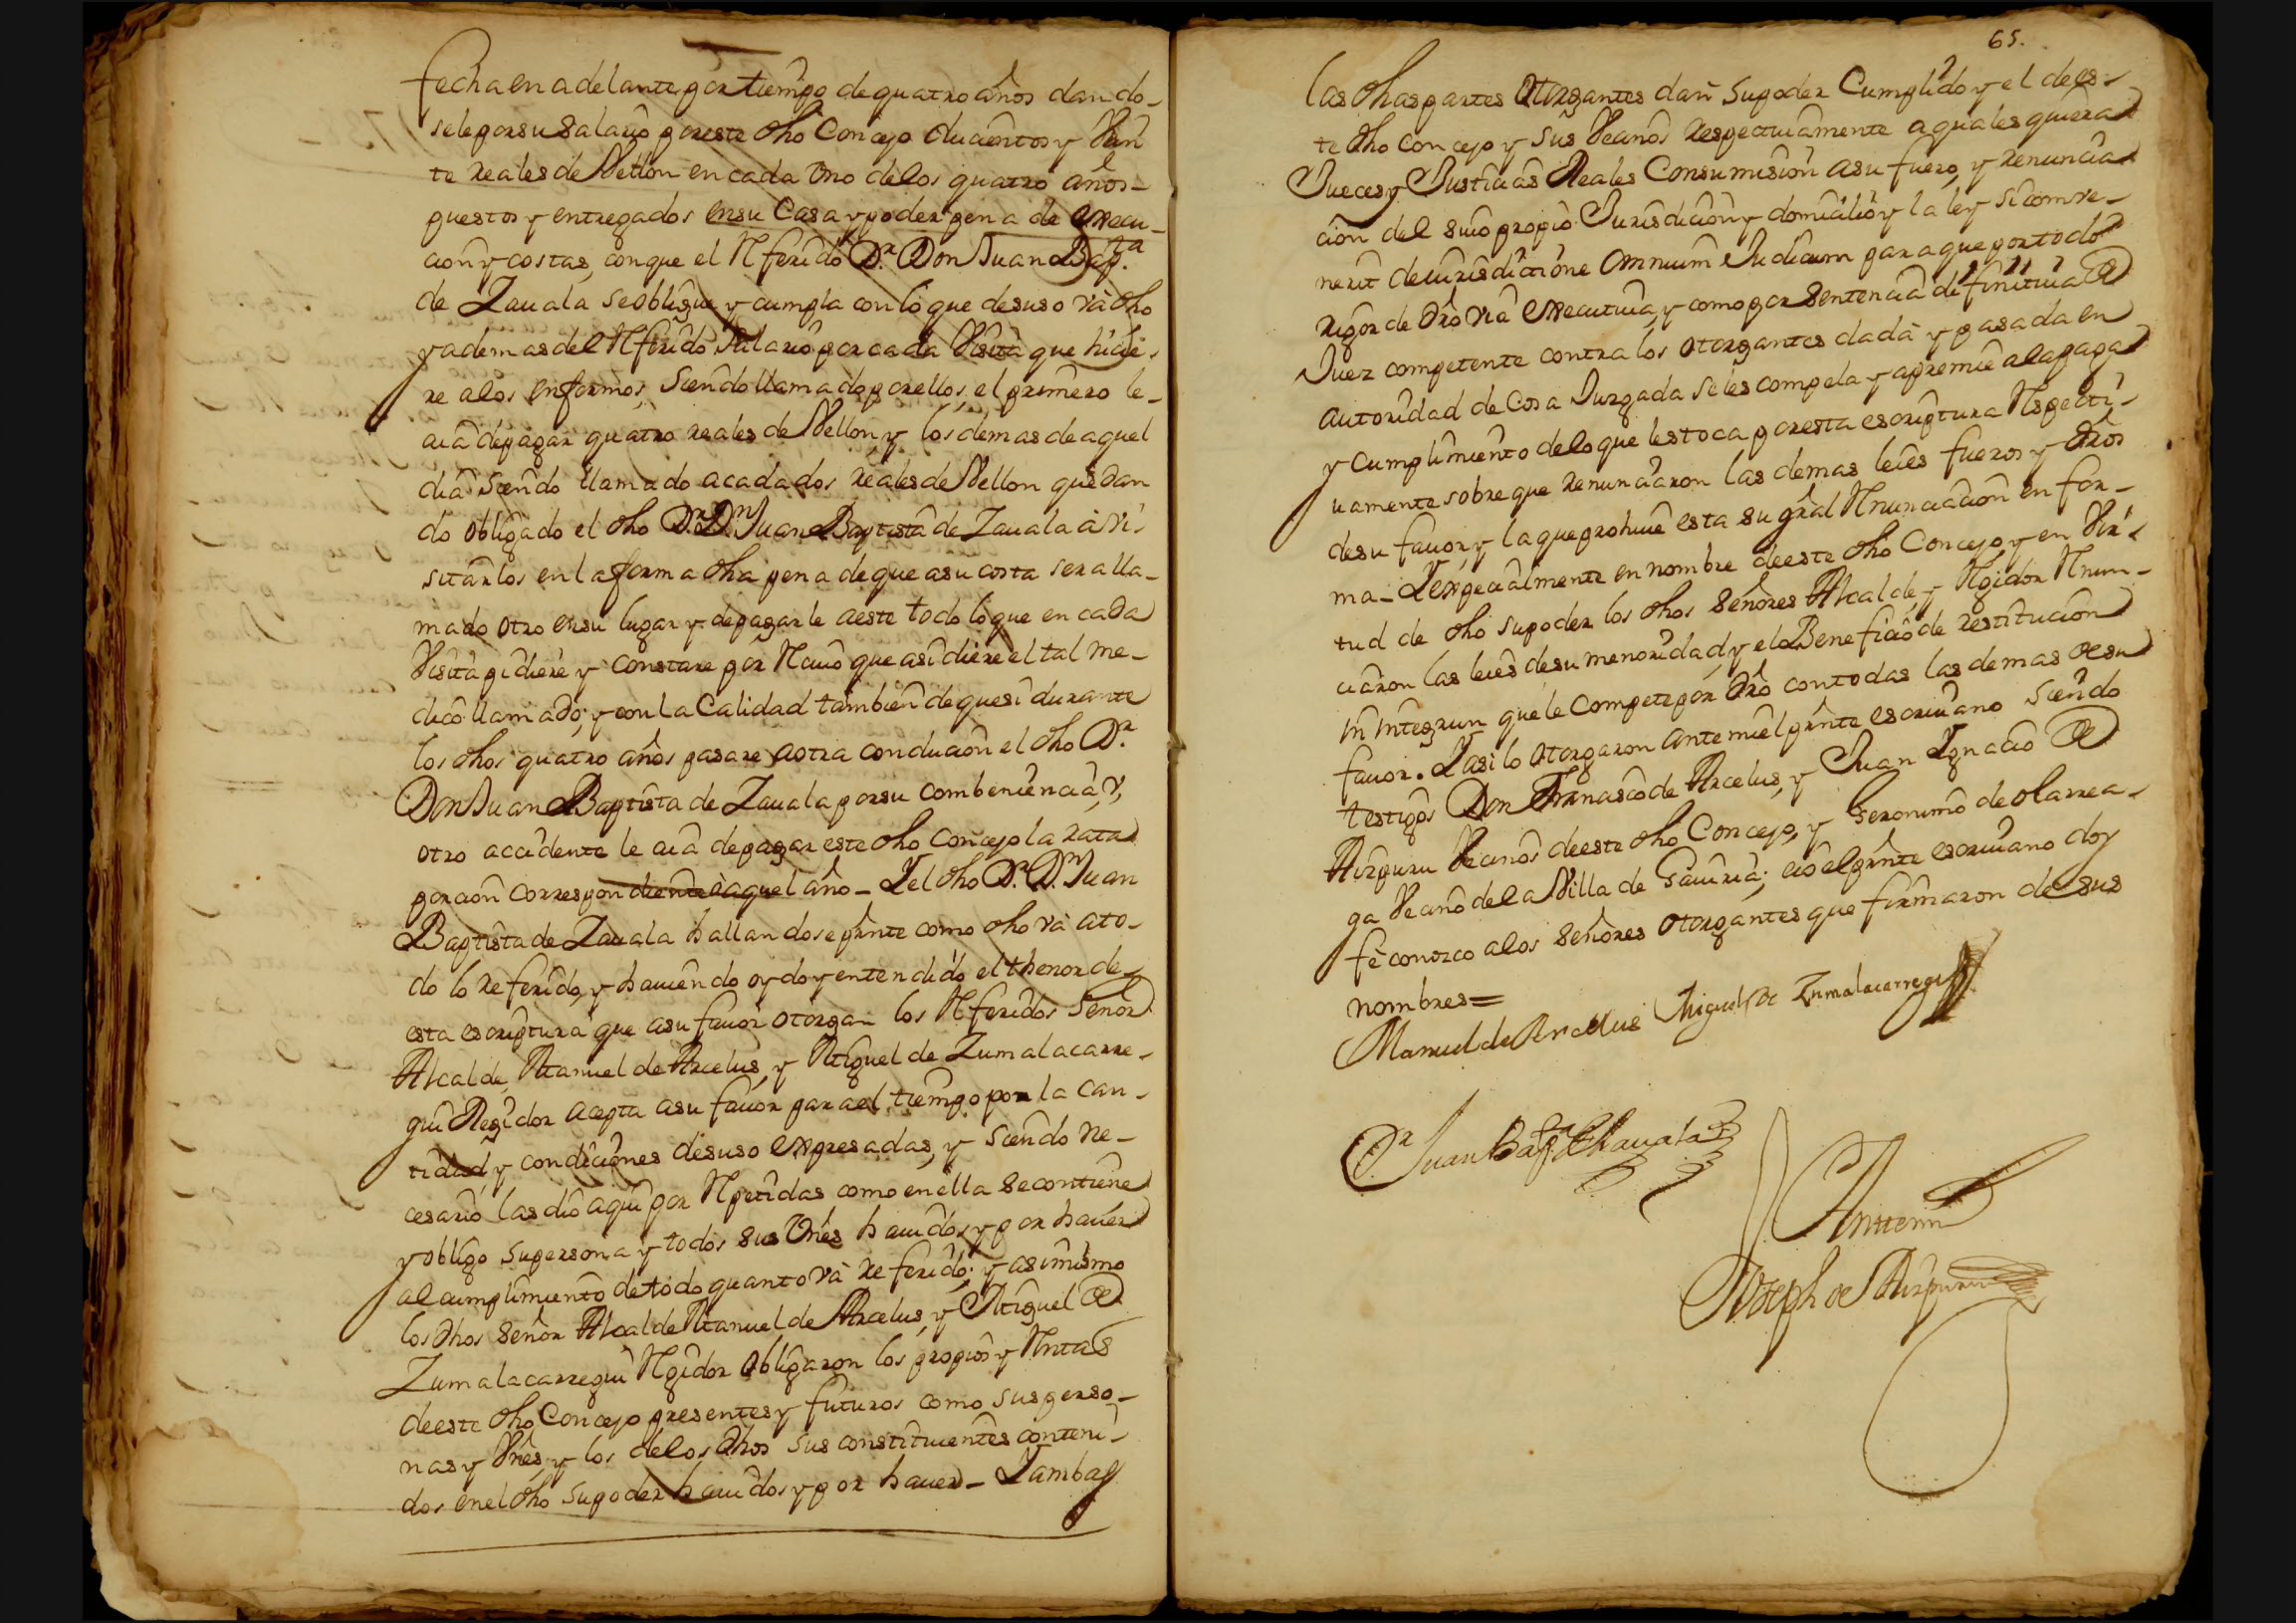 fecha en adelante por tiempo de quatro años dando-
sele por su salario por este dho Concejo ducientos y Vein
te reales de Vellon en cada Uno de los quatro años-
puestos y entregados en su Casa y poder pena de execu-
cion y costas, con que el Referido Dr. Don Juan Bapta
de Zauala se obligue y cumpla con lo que desuso và dho
y ademas del Referido salario por cada Visita que hicie-
re a los enfermos, siendo llamado por ellos, el primero le
aia de pagar quatro reales de Vellon, y los demas de aquel
dia siendo llamado a cada dos reales de Vellon quedan
do obligado el dho Dr. Dn Juan Baptista de Zauala à vi-
sitarlos en la forma dha pena de que a su costa sera lla-
mado otro en su lugar y de pagarle a este todo lo que en cada
Visita pidiere y constare por Reciuo que asi diere el tal me-
dico llamado; y con la Calidad tambien de que si durante
los dhos quatro años pasare a otra conducion el dho Dr.
Don Juan Baptista de Zauala por su combeniencia, v,
otro accidente le aia de pagar este dho Concejo la rata
porcion correspondiente à aquel año- Y el dho Dr. Dn Juan
Baptista de Zauala hallandose prnte como dho và a to-
do lo referido, y hauiendo oydo y entendido el thenor de
esta escriptura que a su fauor otorgan los Referidos Señor
Alcalde Manuel de Arcelus, y Miguel de Zumalacarre-
gui Regidor acepta a su fauor para el tiempo por la can-
tidad y condiciones desuso expresadas, y siendo ne-
cesario las dio aqui por Repetidas como en ella se contiene
y obligo su persona y todos sus Vnes hauidos y por hauer
al cumplimiento de todo quanto và referido; y asimismo
los dhos señor Alcalde Manuel de Arcelus, y Miguel de
Zumalacarregui Regidor obligaron los propios y Rentas
de este dho Concejo presentes y futuros como sus perso-
nas y Vnes, y los de los dhos sus constituientes conteni-
dos en el dho su poder hauidos y por hauer- Y ambas
65.
las dhas partes otorgantes dan su poder Cumplido y el de es-
te dho Concejo y sus Vecinos respectiuamente a quales quiera
Jueces y Justicias Reales Con sumision a su fuero, y renuncia
cion del suio propio Jurisdicion y domicilio y la ley si convè-
nerit de iurisdictione omnium Judicum para que por todo
rigor de dro via executiua, y como por sentencia difinitiua de
Juez competente contra los otorgantes dada y pasada en
autoridad de Cosa Juzgada se les compela y apremie a la paga
y cumplimiento de lo que les toca por esta escriptura Respecti-
uamente sobre que renunciaron las demas leies fueros y dros
de su fauor y la que prohiue esta su gral Renunciacion en for-
ma- Y expecialmente en nombre de este dho Concejo, y en Vir-
tud de dho su poder los dhos señores Alcalde y Regidor Renun-
ciaron las leies de su menoridad, y el Beneficio de restitucion
in integrun que le Compete por dro con todas las demas de su
fauor. Y asi lo otorgaron ante mi el prnte escriuano siendo
testigos Don Francisco de Arcelus, y Juan Ygnacio de
Aizpuru Vecinos de este dho Concejo, y Geronimo de olarrea-
ga Vecino de la Villa de Gauiria; e io el prnte escriuano doy
fè conozco a los señores otorgantes que firmaron de sus
nombres=
Manuel de Arcelus Miguel de Zumalacarregui
Dr Juan Bapta Zhauala
Antemi
Joseph de Aizpuru